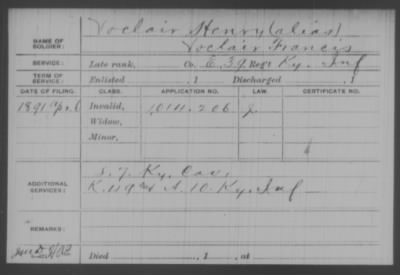 NAME OF SOLDIER: Voclair Henry (alias)
Voclair Francis
SERVICE: Late rank, Co. E. 39 Reg't Ky. Inf
TERM OF SERVICE: Enlisted , 1 Discharged , 1
DATE OF FILING. CLASS. APPLICATION NO. LAW. CERTIFICATE NO.
1891 Apr. 6 Invalid, 1011.206 J.
Widow,
Minor,
ADDITIONAL SERVICES: Ky. Cav.
K. 119 10 Ky. Inf
REMARKS:
Died , 1 , at